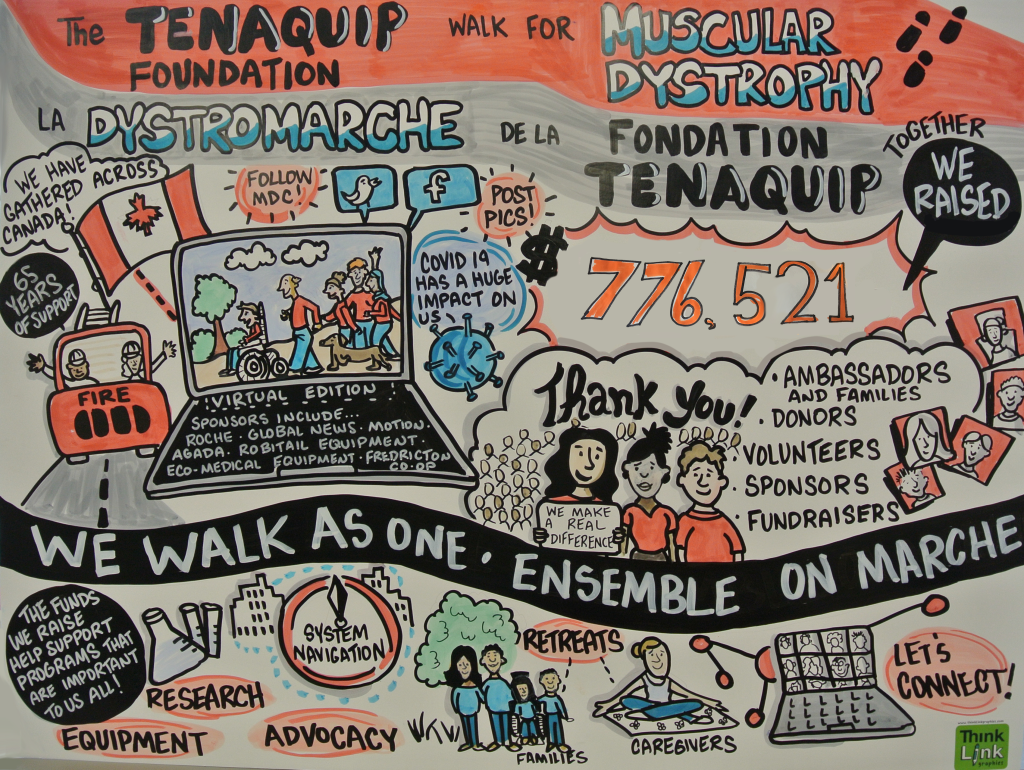 The TENAQUIP WALK FOR MUSCULAR
FOUNDATION DYSTROPHY
LA DYSTROMARCHE DE LA FONDATION
TENAQUIP
TOGETHER
WE
RAISED
WE HAVE
GATHERED ACROSS
CANADA!
FOLLOW
MDC!
f
POST
PICS!
65
YEARS
OF SUPPORT
COVID 19
HAS A HUGE
IMPACT ON
US
$
776,521
FIRE
VIRTUAL EDITION
SPONSORS INCLUDE...
ROCHE · GLOBAL NEWS · MOTION
AGADA · ROBITAIL EQUIPMENT ·
ECO-MEDICAL EQUIPMENT · FREDRICTON
CO-OP
Thank you!
· AMBASSADORS
AND FAMILIES
· DONORS
· VOLUNTEERS
· SPONSORS
· FUNDRAISERS
WE MAKE
A REAL
DIFFERENCE
WE WALK AS ONE · ENSEMBLE ON MARCHE
THE FUNDS
WE RAISE
HELP SUPPORT
PROGRAMS THAT
ARE IMPORTANT
TO US ALL!
RESEARCH
EQUIPMENT
SYSTEM
NAVIGATION
ADVOCACY
RETREATS
FAMILIES
CAREGIVERS
LET'S
CONNECT!
Think
Link
graphics